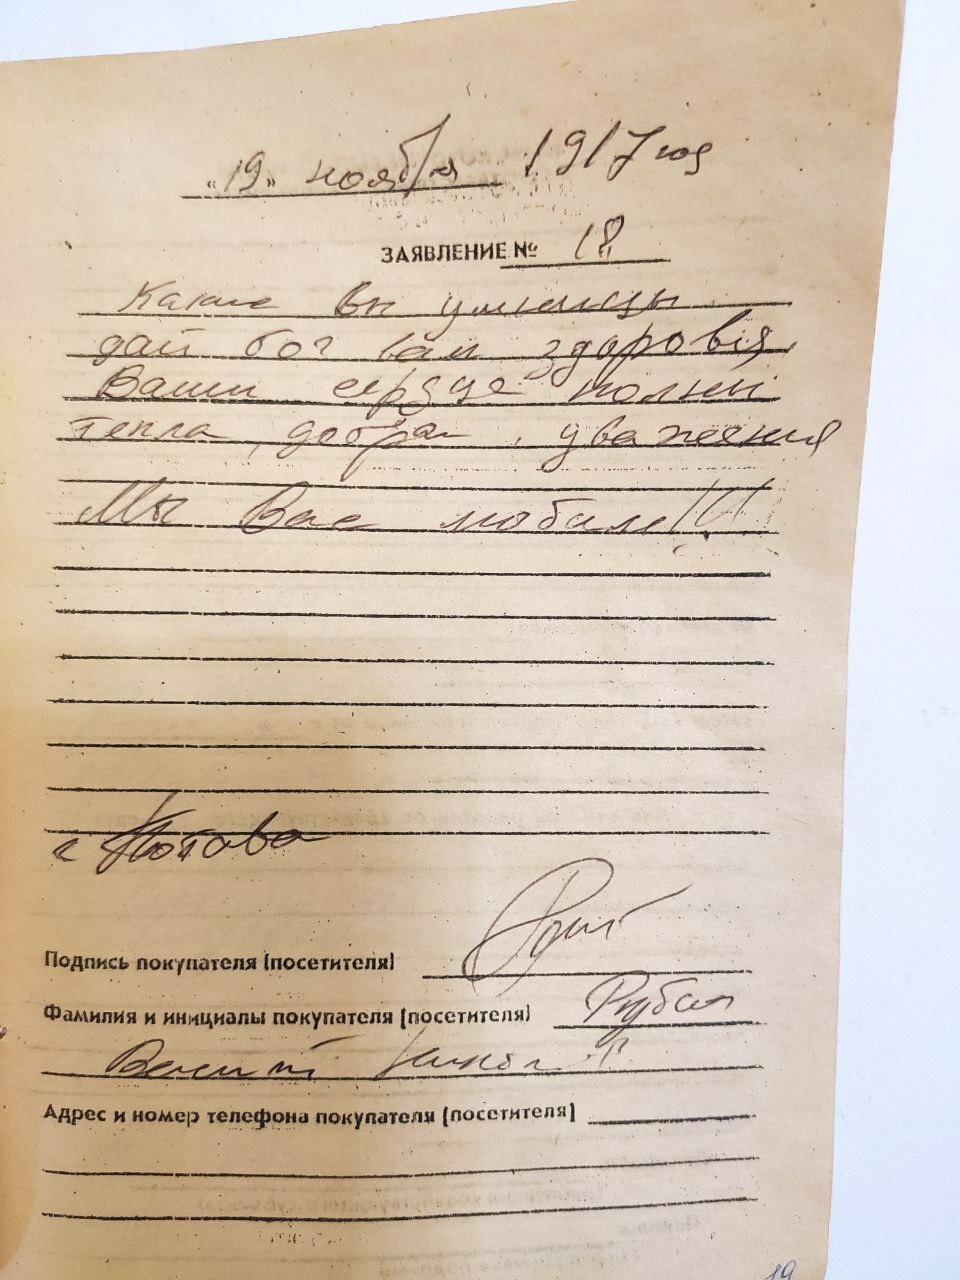 "19" ноября 1917 год
ЗАЯВЛЕНИЕ № 18
Какие вы умницы
дай бог вам здоровія,
Ваши сердца полны
тепла, добра, уважения
Мы Вас любим!!!
г
Подпись покупателя (посетителя)
Фамилия и инициалы покупателя (посетителя) Рубан
Адрес и номер телефона покупателя (посетителя)
19